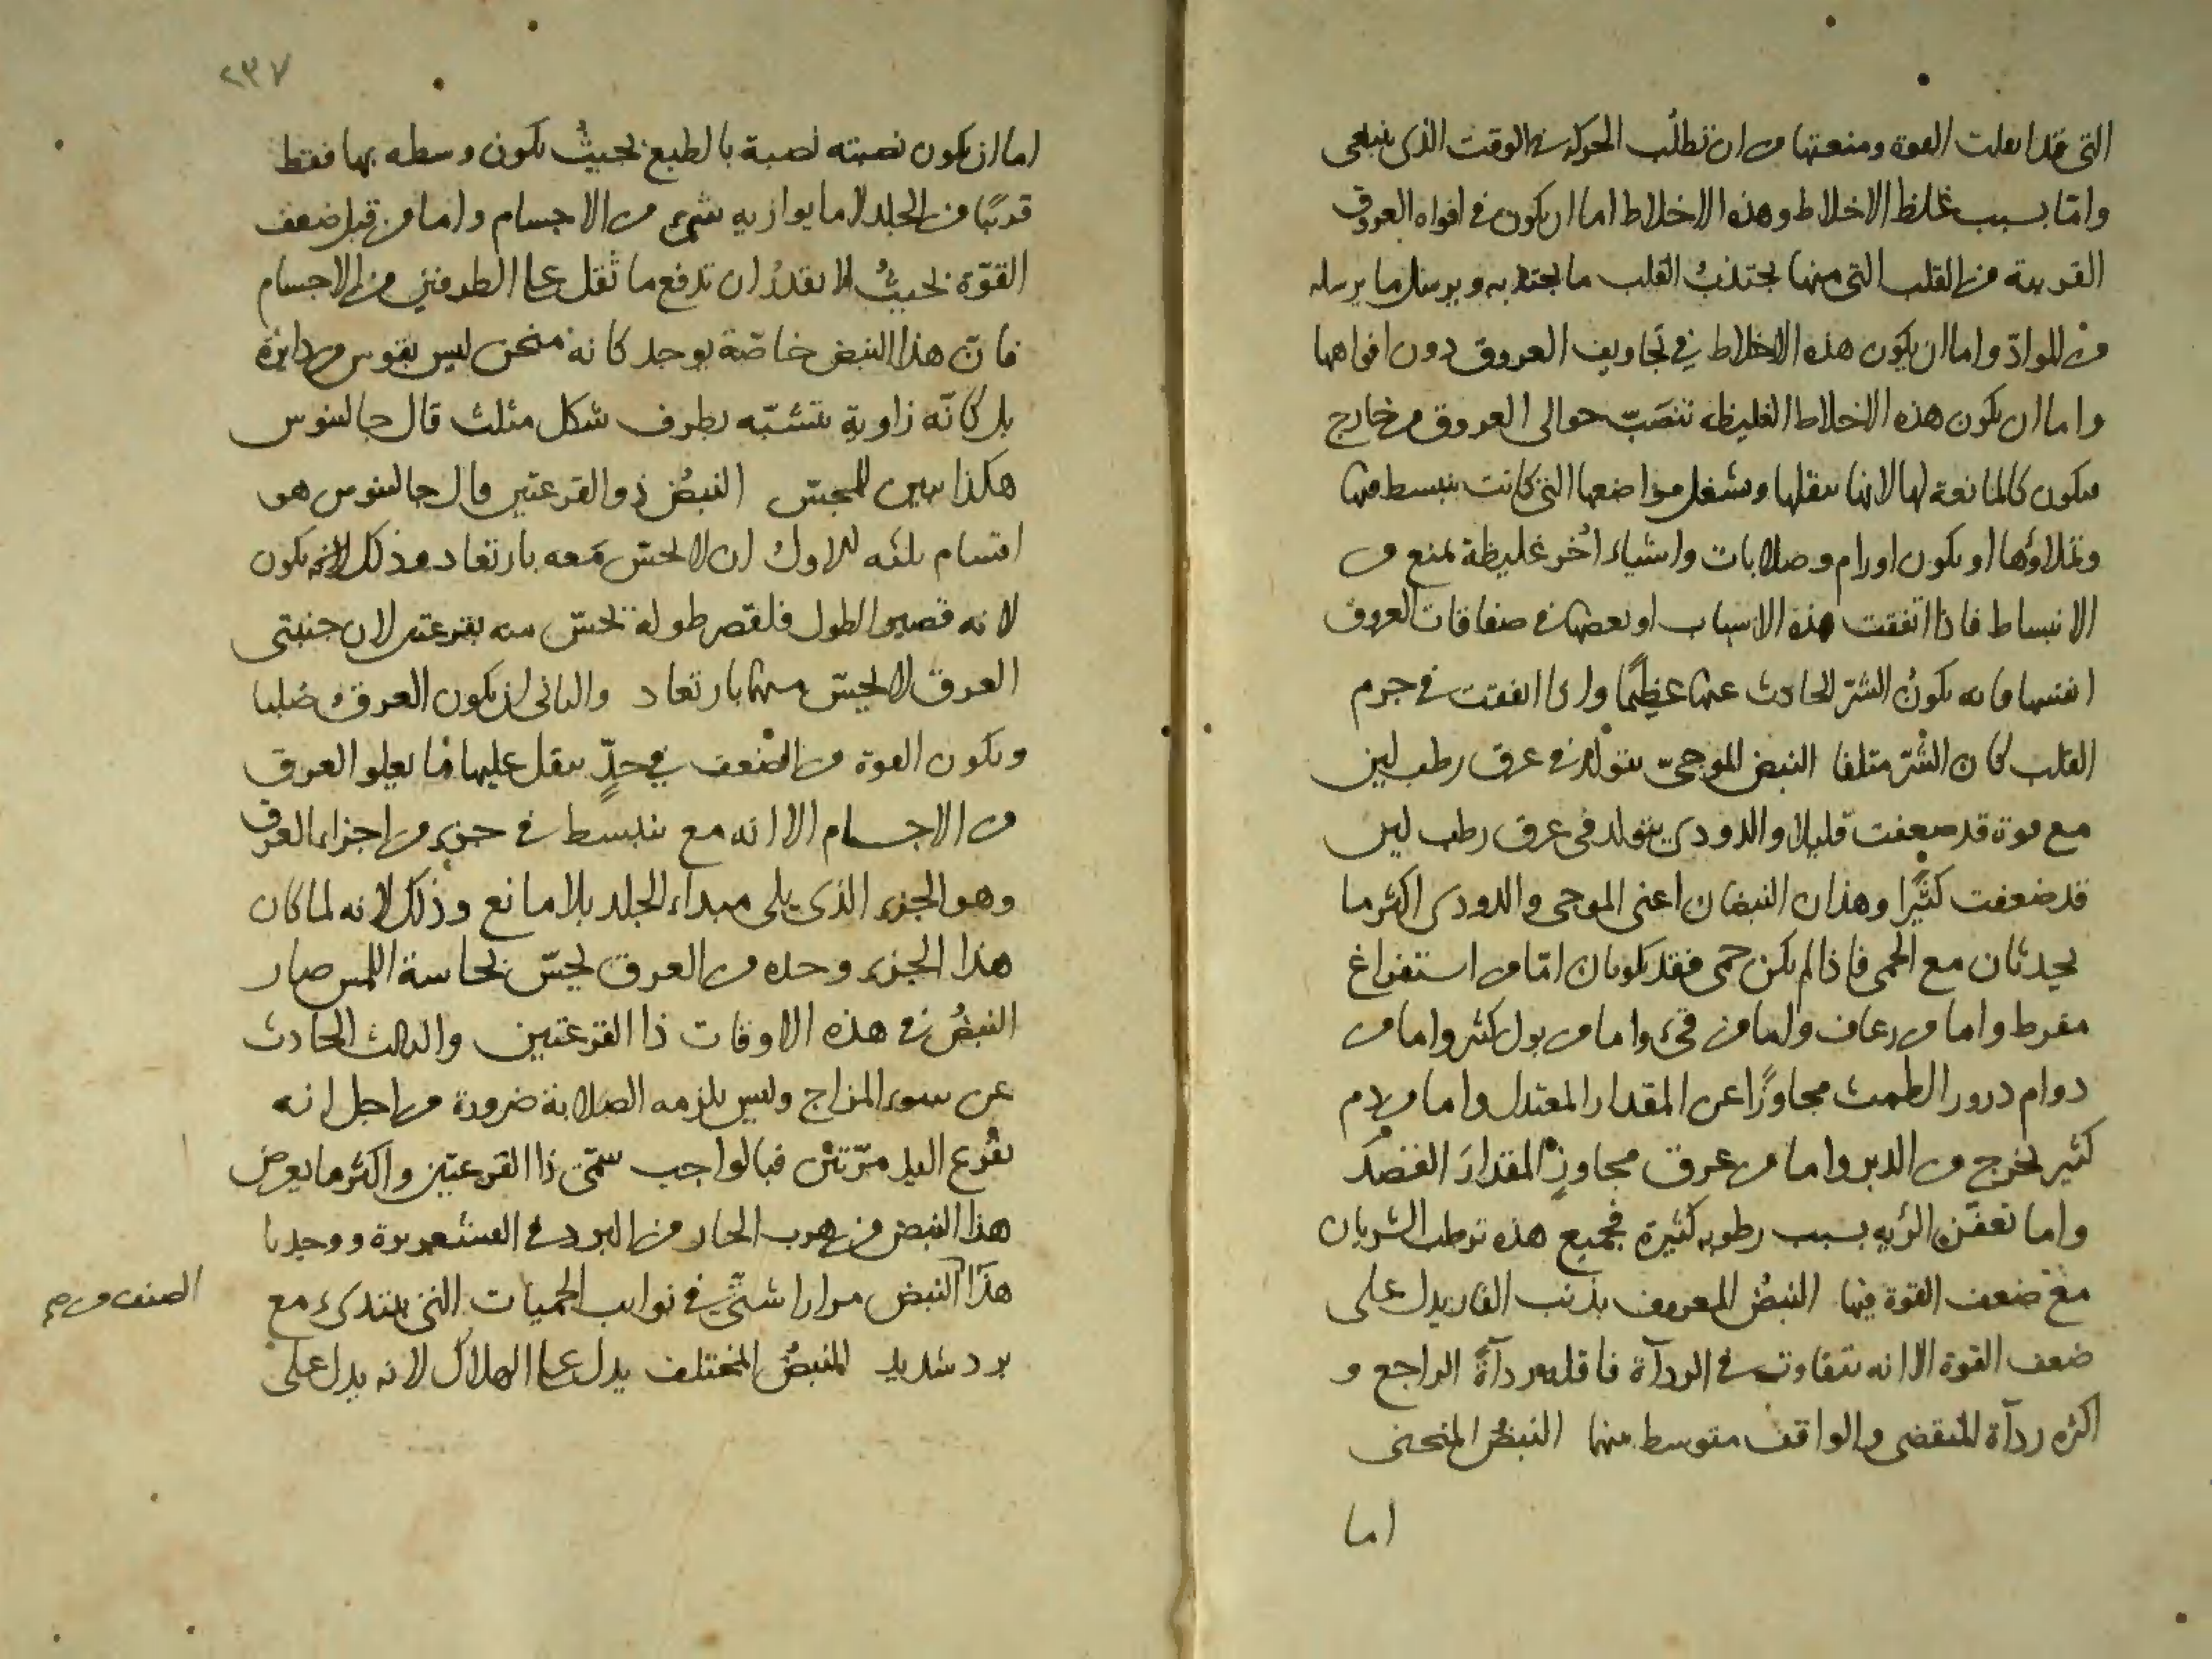 التى قد اثقلت القوة ومنعتها من ان تطلب الحركة فى الوقت الذى ينبغى
وامّا بسبب غلظ الاخلاط وهذه الاخلاط اما ان يكون فى افواه العروق
القريبة من القلب التى منها يجتذب القلب ما يجتذبه ويرسل ما يرسله
من المواد واما ان يكون هذه الاخلاط في تجاويف العروق دون افواهها
واما ان يكون هذه الاخلاط الغليظه تنصَبّ حوالى العروق من خارج
فيكون كالمانعة لها لانها يثقلها ويشغل مواضعها التى كانت ينبسط فيها
وتملاؤها او يكون اورام وصلابات واشياء اُخر غليظة تمنع من
الانبساط فاذا اتفقت هذه الاسباب او بعضها فى صفاقات العروق
انفسها فانه يكونُ الشرّ الحادث عنها عظيمًا واذا اتفقت فى جرم
القلب كان الشرّ متلفا النبض الموجىّ يتولد فى عرق رطب لين
مع قوة قد ضعفت قليلا والدودى يتولد فى عرق رطب لين
قد ضعفت كثيرًا وهذان النبضان اعنى الموجى والدودى اكثر ما
يحدثان مع الحمى فاذا لم يكن حمى فقد يكونان امّا من استفراغ
مفرط واما من رعاف واما من قىء واما من بول كثير واما من
دوام درور الطمث مجاوزًا عن المقدار المعتدل واما من دم
كثير يخرج من الدبر واما من عرق مجاوزٍ المقدارَ القصد
واما تعفّن الرّيه بسبب رطوبه كثيرة فجميع هذه ترطب الشريان
مع ضعف القوة فيها النبضُ المعروف بذنب الفار يدل على
ضعف القوة الا انه يتفاوت فى الردآة فاقله ردآةً الراجع و
اكثره ردآة المنقضى والواقف متوسط بينها النبضُ المنحنى
اما
٢٣٧
اما ان يكون نصبته نصبة بالطبع بحيثُ يكون وسطه بها فقط
قريبًا من الجلد لا ما يوازيه شىء من الاجسام واما من قبل ضعف
القوّة بحيثُ لا يقدرُ ان تدفع ما ثقل على الطرفين من الاجسام
فانّ هذا النبض خاصّة يوجد كانه منحن ليس بقوس من دايرة
بل كانّه زاوية يتشبّه بطرف شكل مثلث قال جالينوس
هكذا يبين للمجسّ النبضُ ذو القرعتين قال جالينوس هو
اقسام ثلثه الاول ان لا يحسّ مَعه بارتعاد وذلك لانه يكون
لانه قصير الطول فلقصر طوله يحسّ منه بقرعتين لان جنبتى
العرق لا يحسّ منهما بارتعاد والثانى ان يكون العرق صُلبا
ويكون القوة من الضعف في حدٍّ يثقل عليها ما يعلو العرق
من الاجسام الا انه مع ينبسط فى جزء من اجزاء العرق
وهو الجزء الذى يلى مبداء الجلد بلا مانع وذلك لانه لما كان
هذا الجزء وحده من العرق يحسّ بحاسة اللمس صار
النبضُ فى هذه الاوقات ذا القرعتين والثالث الحادث
عن سوء المزاج وليس يلزمه الصلابة ضرورة من اجل انه
يقْرَع اليد مرّتين فبالواجب سمّى ذا القرعتين واكثر ما يعرض
هذا النبض من هرب الحار من البرد فى القشعريرة ووجدنا
هذا النبض مرارا شتّى في نوايب الحميات التى يبتدىء مع
برد شديد النبضُ المختلف يدل على الهلاك لانه يدل على
الصنف من